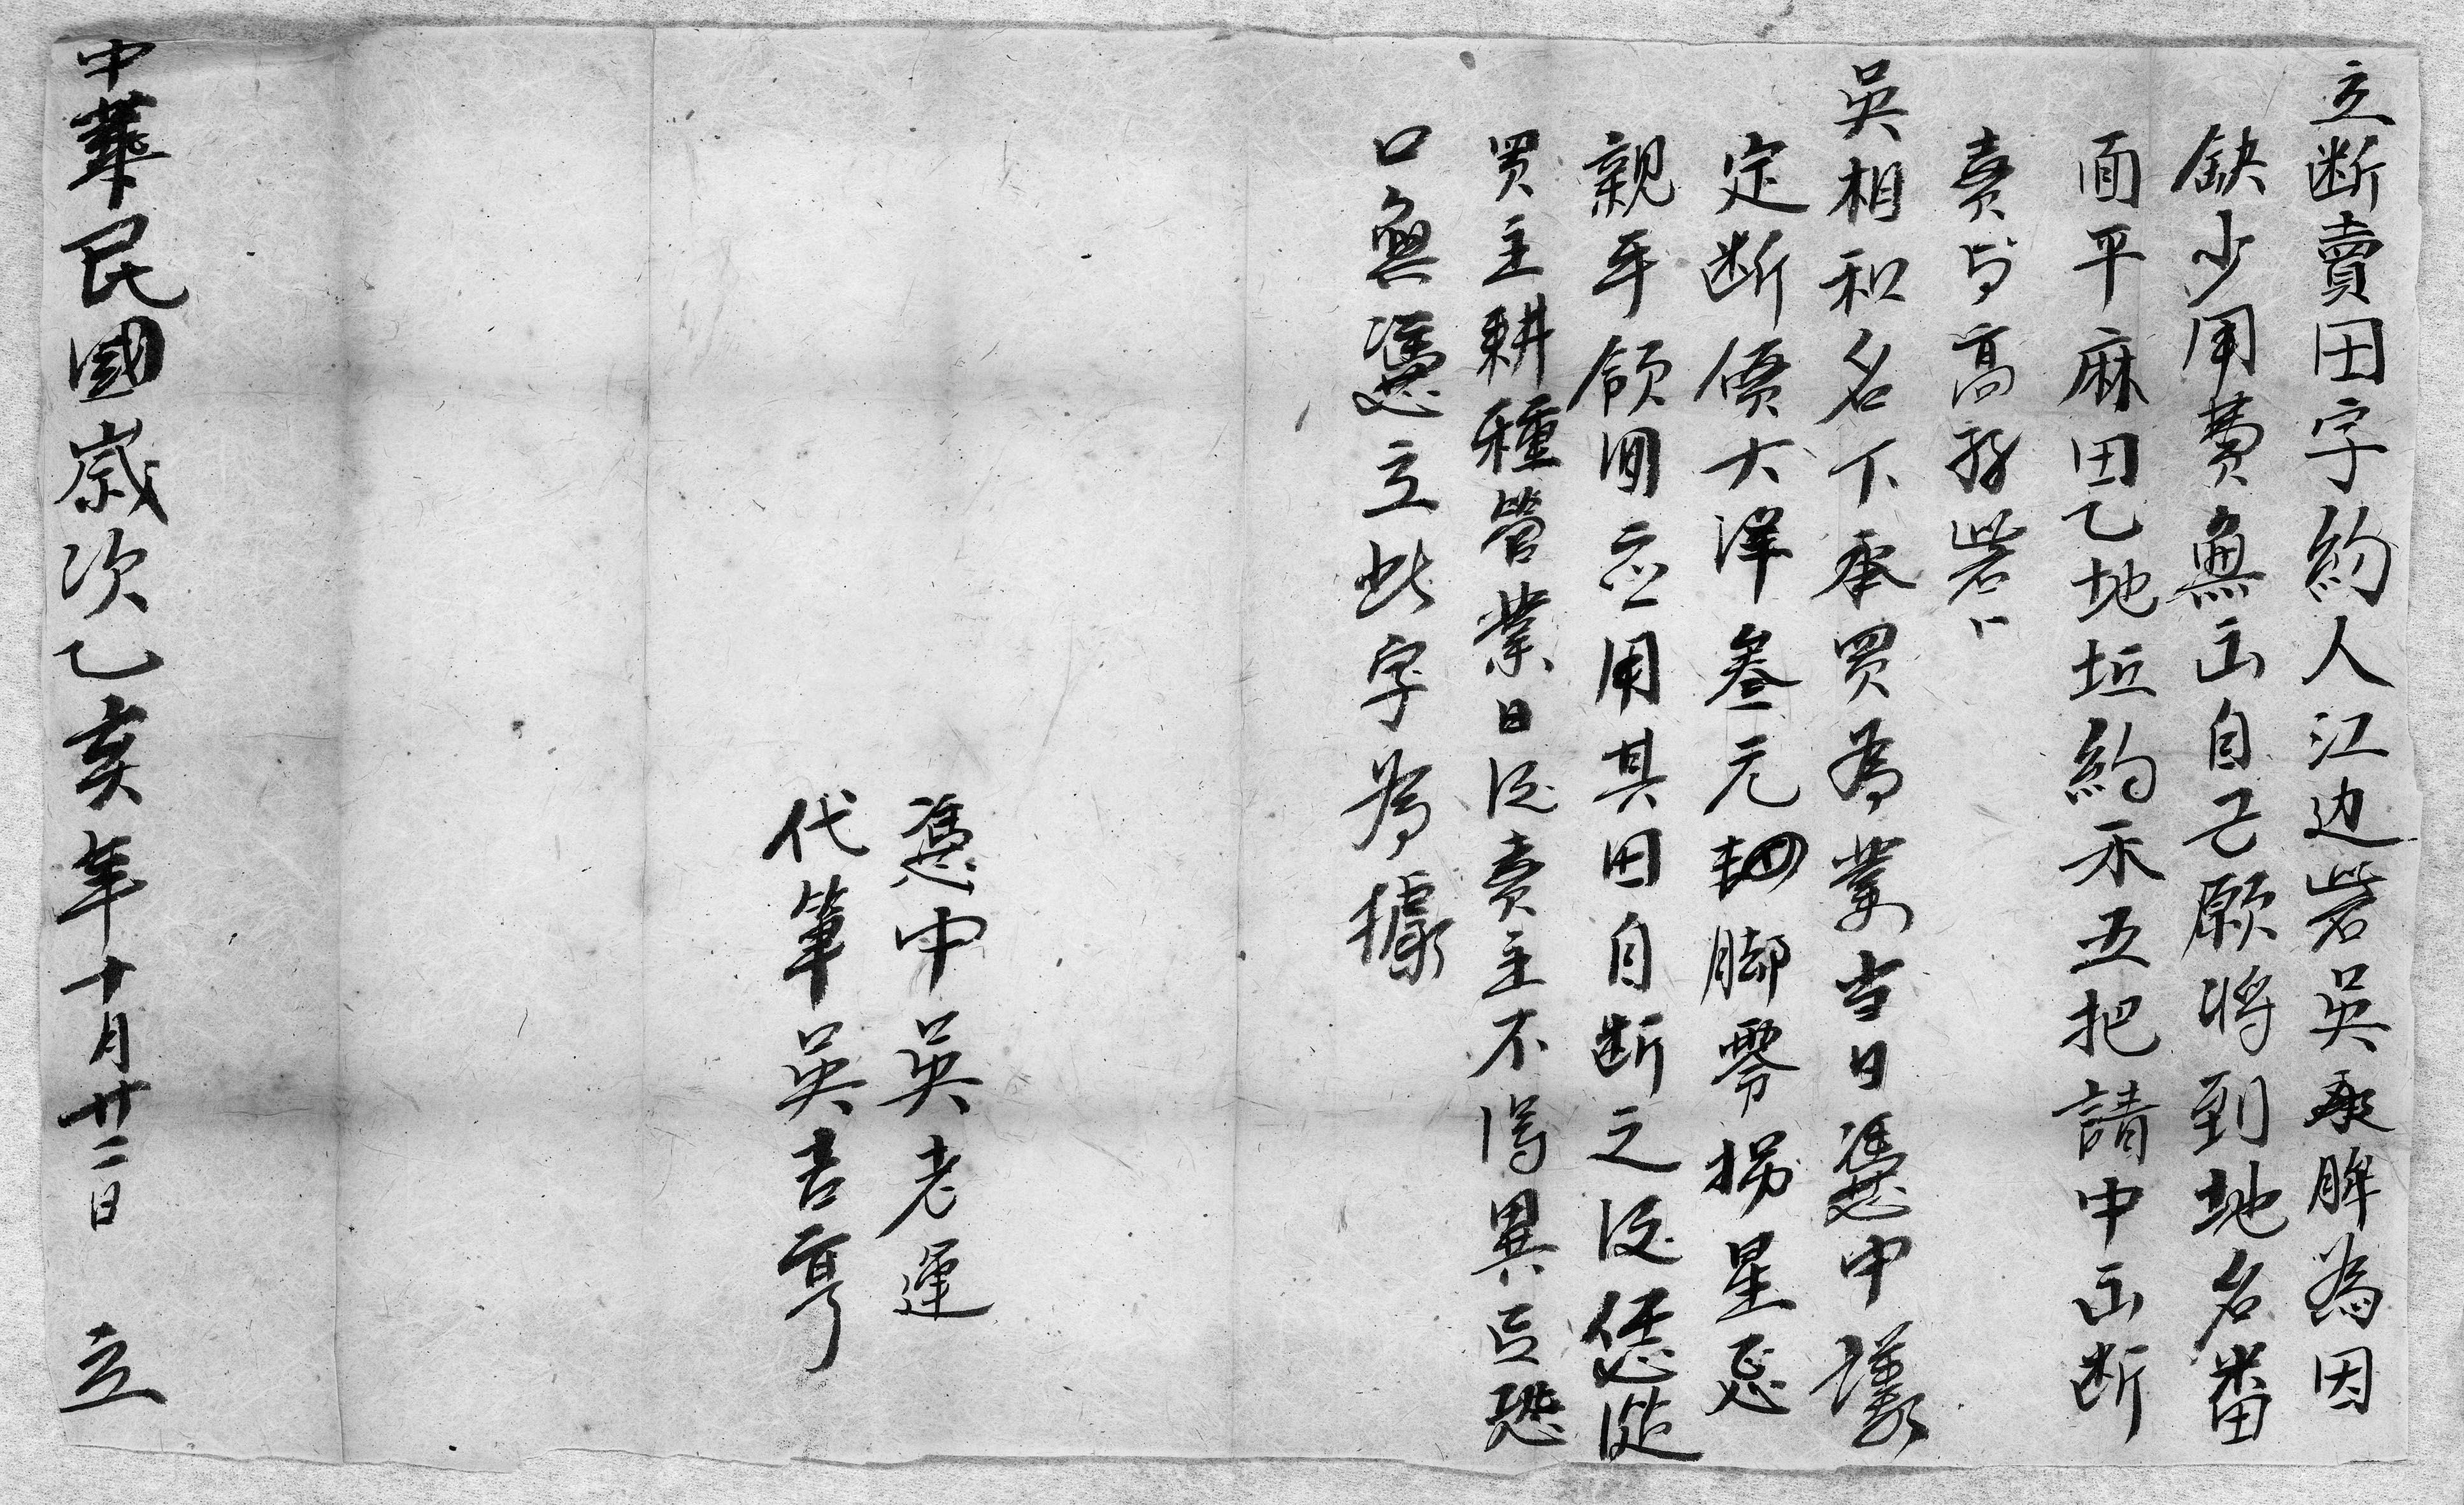 立断賣田字約人江边砦吳承牌為因
缺少用費無出自己願将到地名番
面平麻田乙地坵約禾五把請中出断
賣与高孖砦
吳相和名下承買为業当日憑中議
定断價大洋叁元四脚零拐星忎
親手領囬应用其田自断之後恁從
買主耕種管業日後賣主不淂異言恐
口無憑立此字为據
憑中吳老運
代筆吳吉亨
中華民國嵗次乙亥年十月廿二日 立